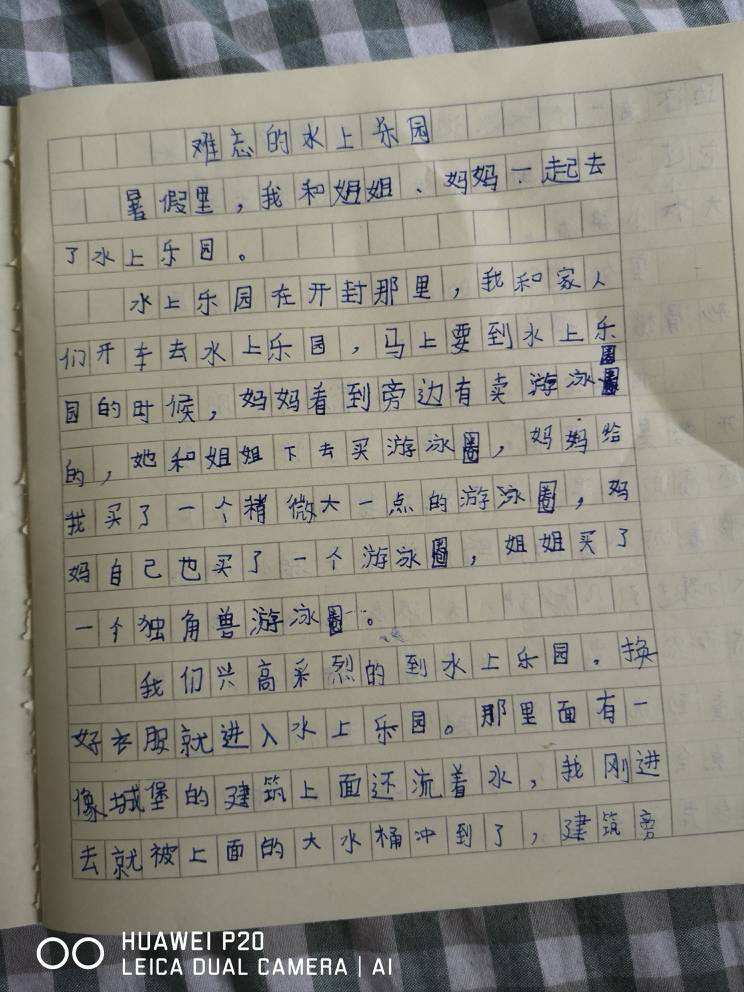 难忘的水上乐园
暑假里，我和姐姐、妈妈一起去
了水上乐园。
水上乐园在开封那里，我和家人
们开车去水上乐园，马上要到水上乐
园的时候，妈妈看到旁边有卖游泳圈
的，她和姐姐下去买游泳圈，妈妈给
我买了一个稍微大一点的游泳圈，妈
妈自己也买了一个游泳圈，姐姐买了
一个独角兽游泳圈。
我们兴高采烈的到水上乐园。换
好衣服就进入水上乐园。那里面有一
像城堡的建筑上面还流着水，我刚进
去就被上面的大水桶冲到了，建筑旁
HUAWEI P20
LEICA DUAL CAMERA | AI